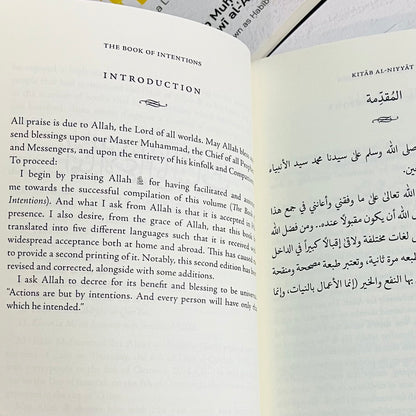 L
Muh
wī al-A
own as Habib
THE BOOK OF INTENTIONS
INTRODUCTION
All praise is due to Allah, the Lord of all worlds. May Allah
send blessings upon our Master Muhammad, the Chief of all
and Messengers, and upon the entirety of his kinfolk and
To proceed:
I begin by praising Allah ﷻ for having facilitated and
me towards the successful compilation of this volume (The
Intentions). And what I ask from Allah is that it is accepted in
presence. I also desire, from the grace of Allah, that this
translated into five different languages such that it is received
widespread acceptance both at home and abroad. This has
to provide a second printing of it. Notably, this second edition has
revised and corrected, alongside with some additions.
I ask Allah to decree for its benefit and blessing to be
“Actions are but by intentions. And every person will have only
which he intended.”
KITĀB AL-NIYYĀT
المُقدّمة
صلى الله وسلم على سيدنا محمد سيد الأنبياء
الله تعالى على ما وفقني وأعانني في جمع هذا
الله أن يكون مقبولاً عنده.. ومن فضل الله
لغات مختلفة ولاقى إقبالاً كبيراً في الداخل
طبعه مرة ثانية، وتعتبر طبعة مصححة ومنقحة
بها النفع والخير (إنما الأعمال بالنيات، وإنما